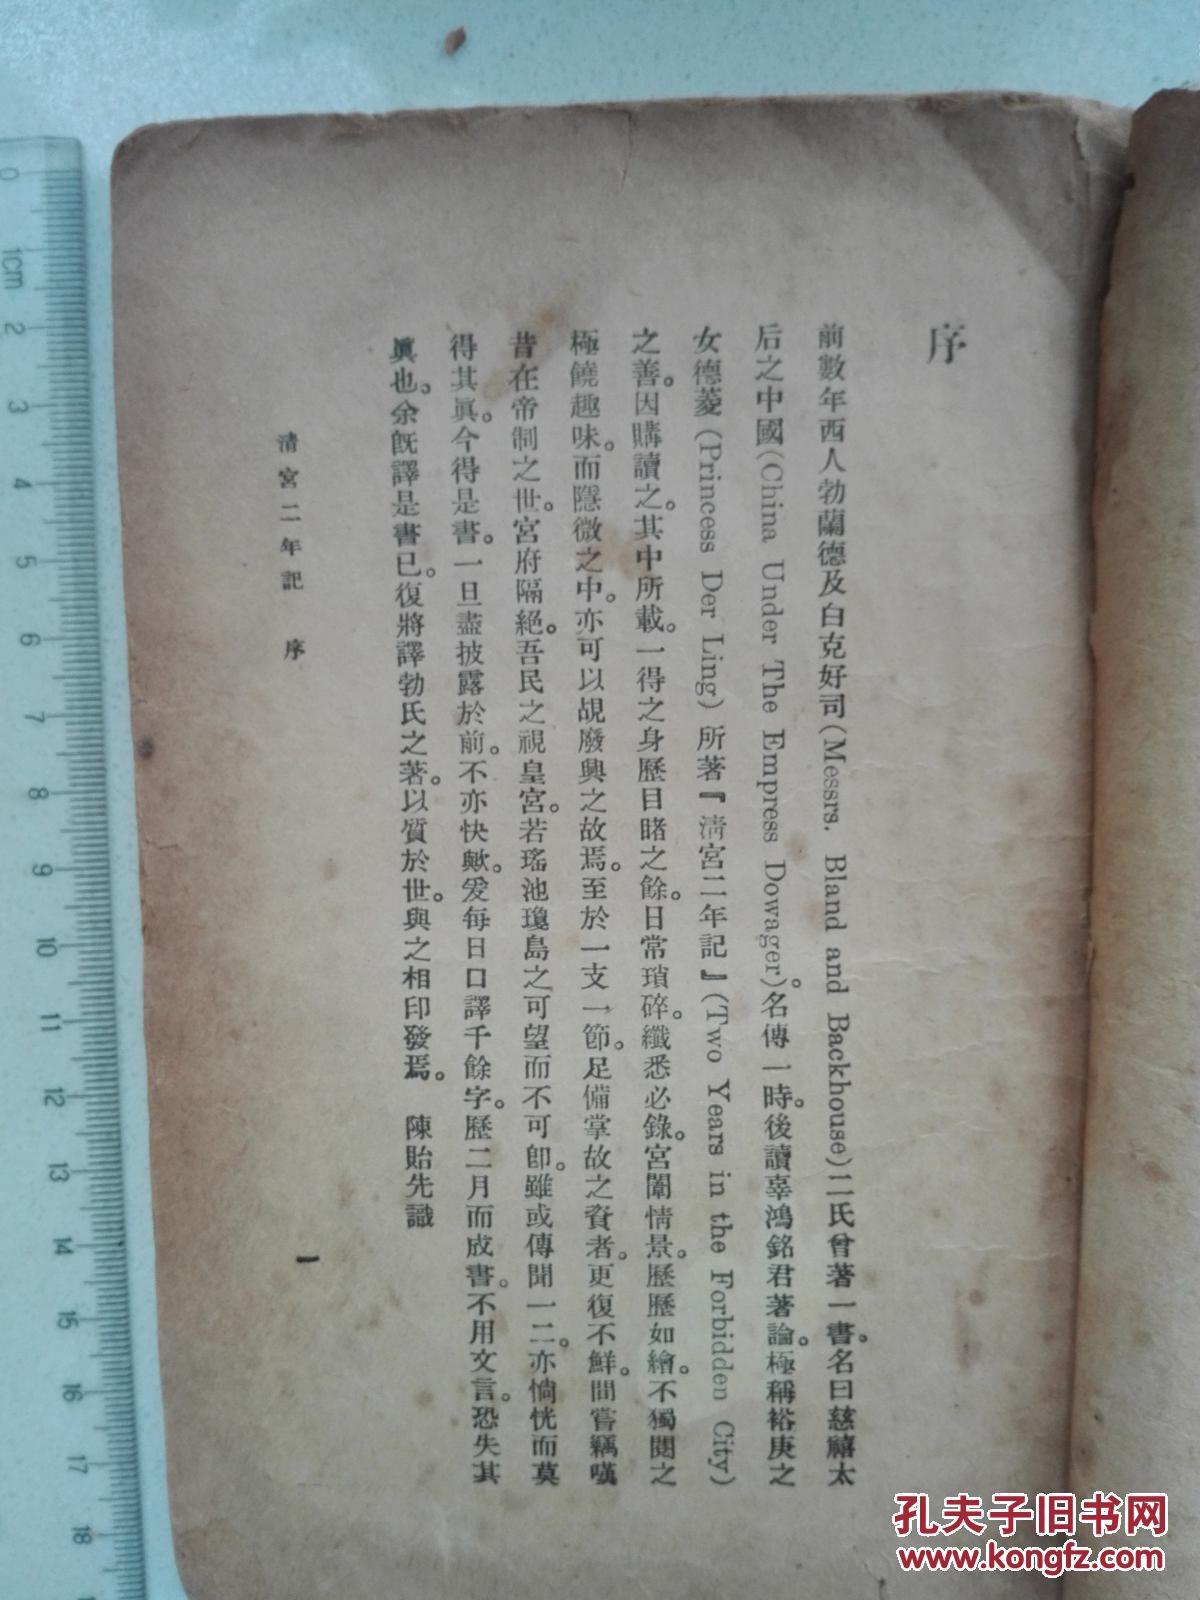 序
前數年西人勃蘭德及白克好司(Messrs. Bland and Backhouse)二氏曾著一書。名曰慈禧太
后之中國(China Under The Empress Dowager)。名傳一時。後讀辜鴻銘君著論。極稱裕庚之
女德菱(Princess Der Ling)所著『清宮二年記』(Two Years in the Forbidden City)
之善。因購讀之。其中所載。一得之身歷目睹之餘。日常瑣碎。纖悉必錄。宮闈情景。歷歷如繪。不獨閱之
極饒趣味。而隱微之中。亦可以覘廢興之故焉。至於一支一節。足備掌故之資者。更復不鮮。間嘗竊嘆
昔在帝制之世。宮府隔絕。吾民之視皇宮。若瑤池瓊島之可望而不可卽。雖或傳聞一二。亦惝恍而莫
得其眞。今得是書。一旦盡披露於前。不亦快歟。爰每日口譯千餘字。歷二月而成書。不用文言。恐失其
眞也。余旣譯是書已。復將譯勃氏之著。以質於世。與之相印發焉。 陳貽先識
清宮二年記 序
一
0 1cm 2 3 4 5 6 7 8 9 10 11 12 13 14 15 16 17 18
孔夫子旧书网
www.kongfz.com